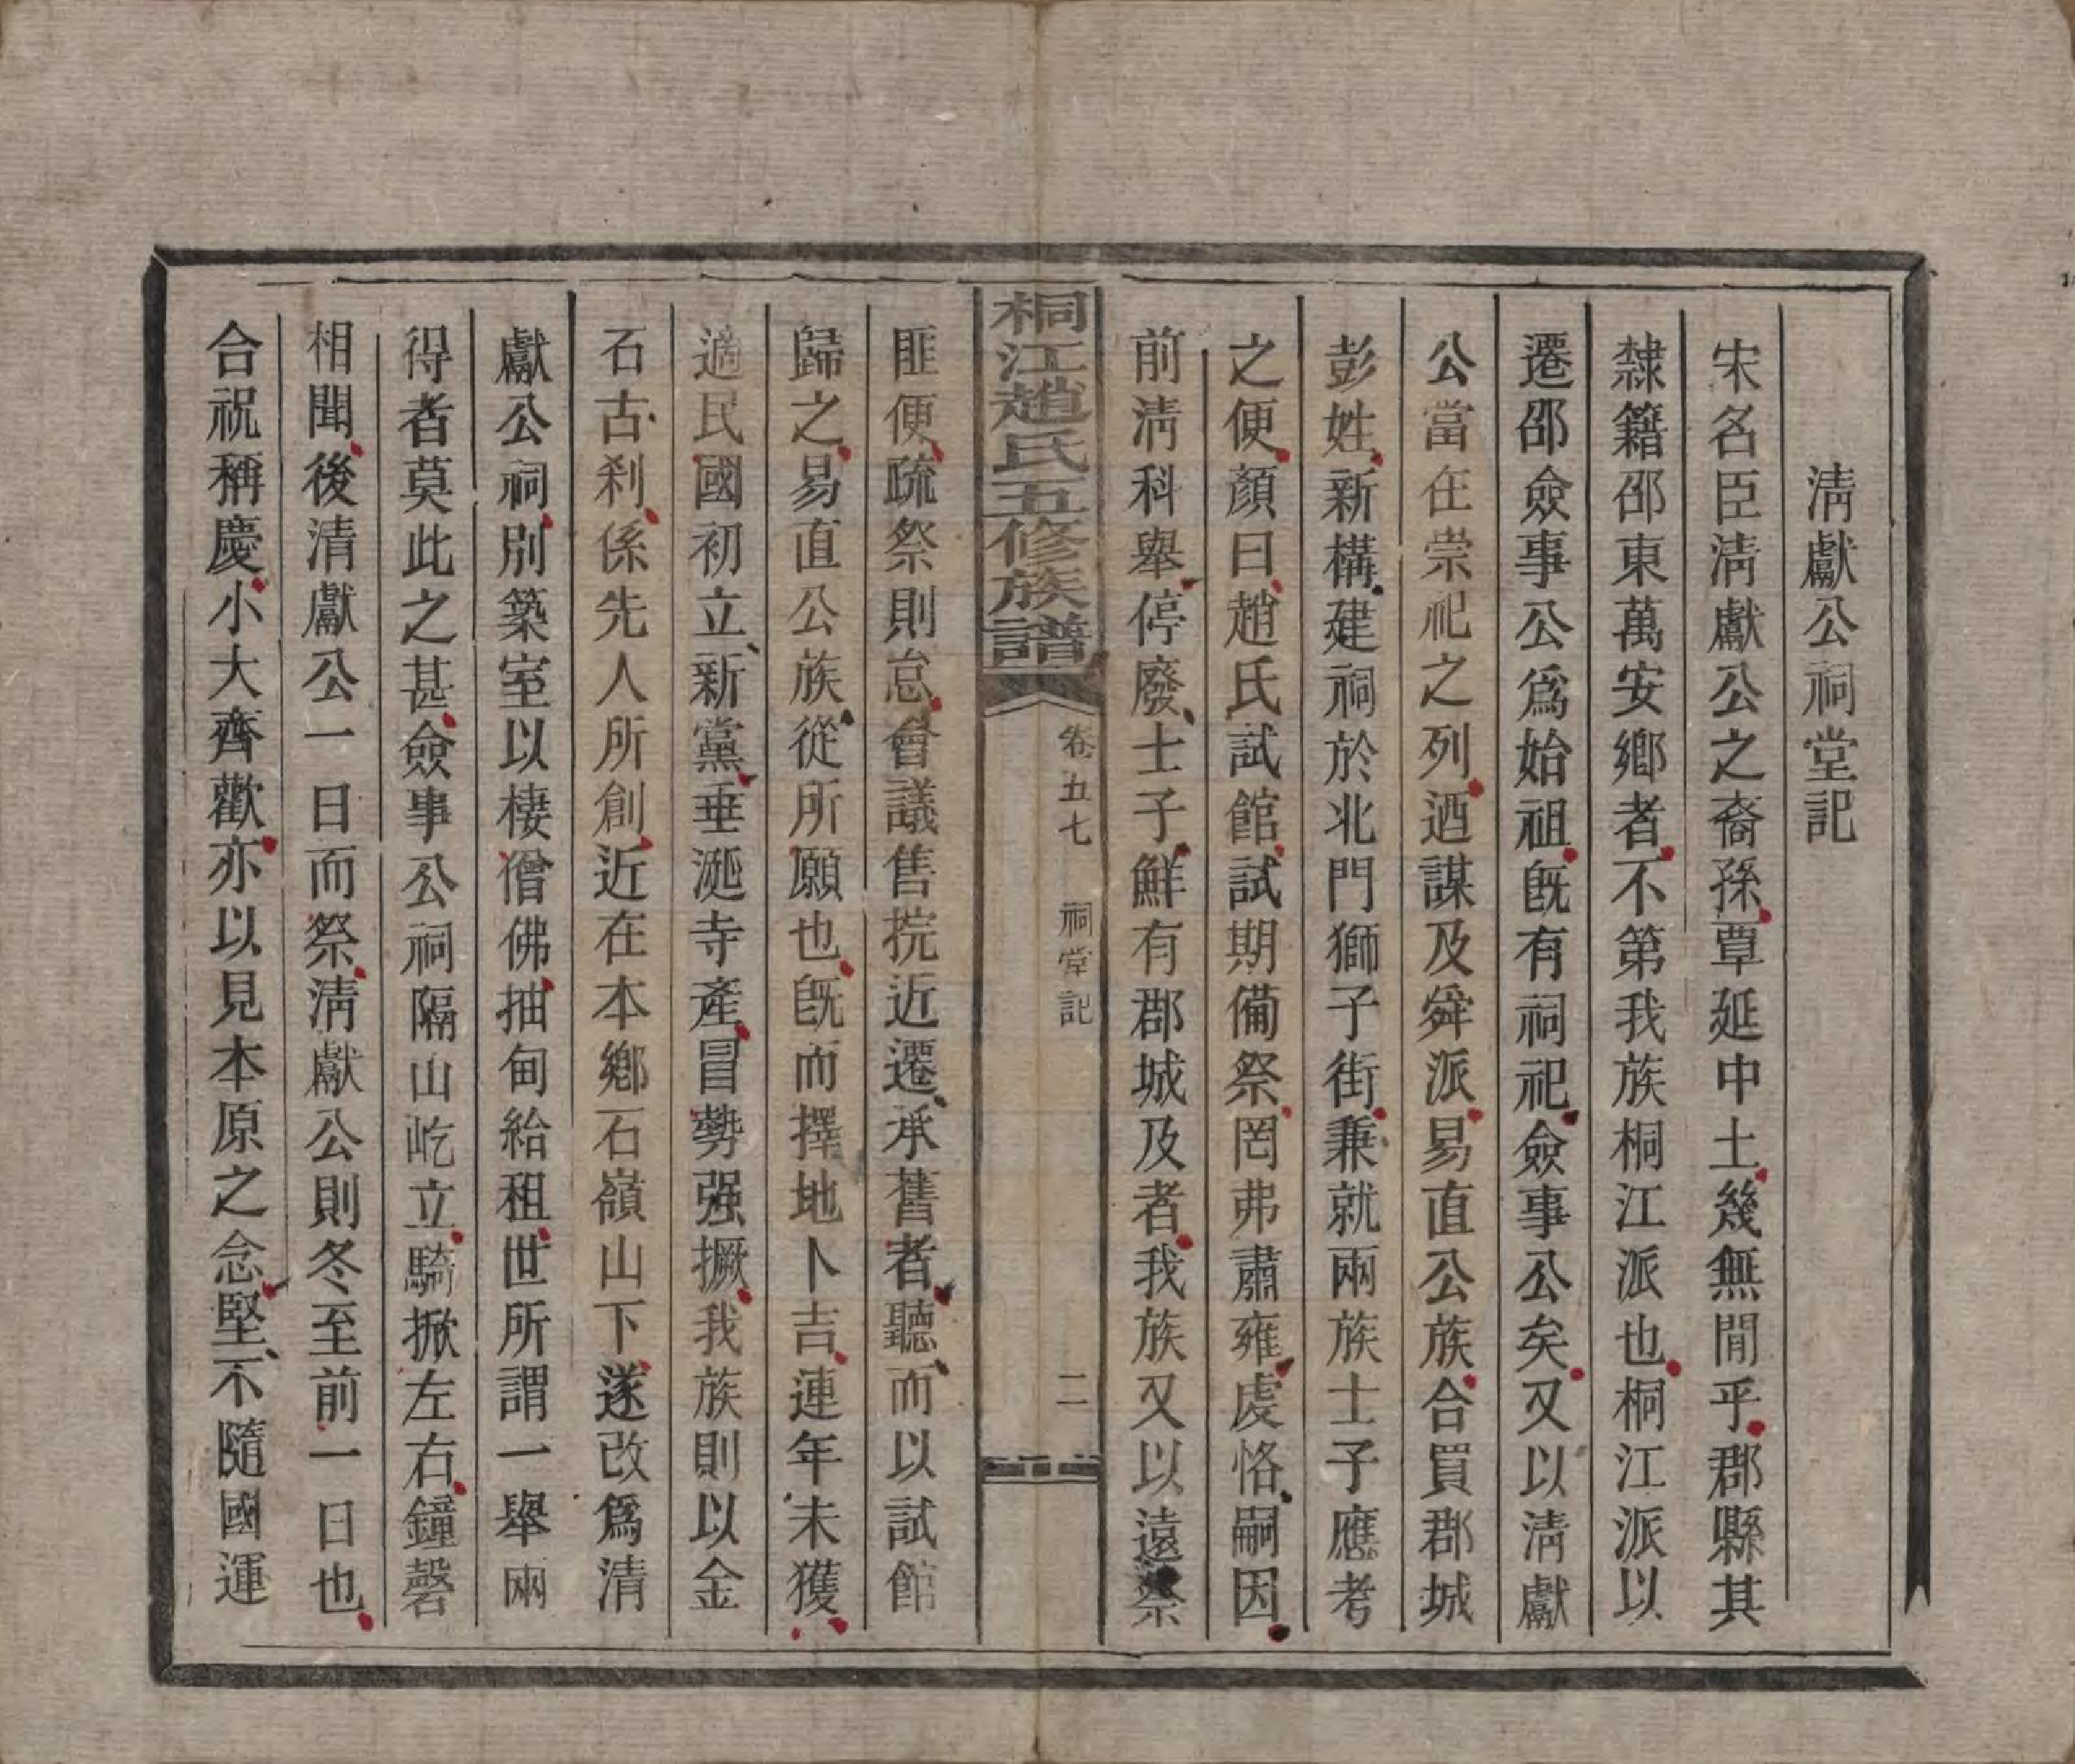 清獻公祠堂記
宋名臣清獻公之裔孫覃延中土幾無間乎郡縣其
隸籍邵東萬安鄉者不第我族桐江派也桐江派以
遷邵僉事公爲始祖旣有祠祀僉事公矣又以清獻
公當在崇祀之列迺謀及舜派易直公族合買郡城
彭姓新構建祠於北門獅子街兼就兩族士子應考
之便顏曰趙氏試館試期備祭罔弗肅雍虔恪嗣因
前清科舉停廢士子鮮有郡城及者我族又以遠祭
桐江趙氏五修族譜
卷五七 祠堂記 二
匪便疏祭則怠會議售捖近遷承舊者聽而以試館
歸之易直公族從所願也旣而擇地卜吉連年未獲
適民國初立新黨垂涎寺產冒勢强撅我族則以金
石古刹係先人所創近在本鄉石嶺山下遂改爲清
獻公祠別築室以棲僧佛抽甸給租世所謂一舉兩
得者莫此之甚僉事公祠隔山屹立騎掀左右鐘磬
相聞後清獻公一日而祭清獻公則冬至前一日也
合祝稱慶小大齊歡亦以見本原之念堅不隨國運